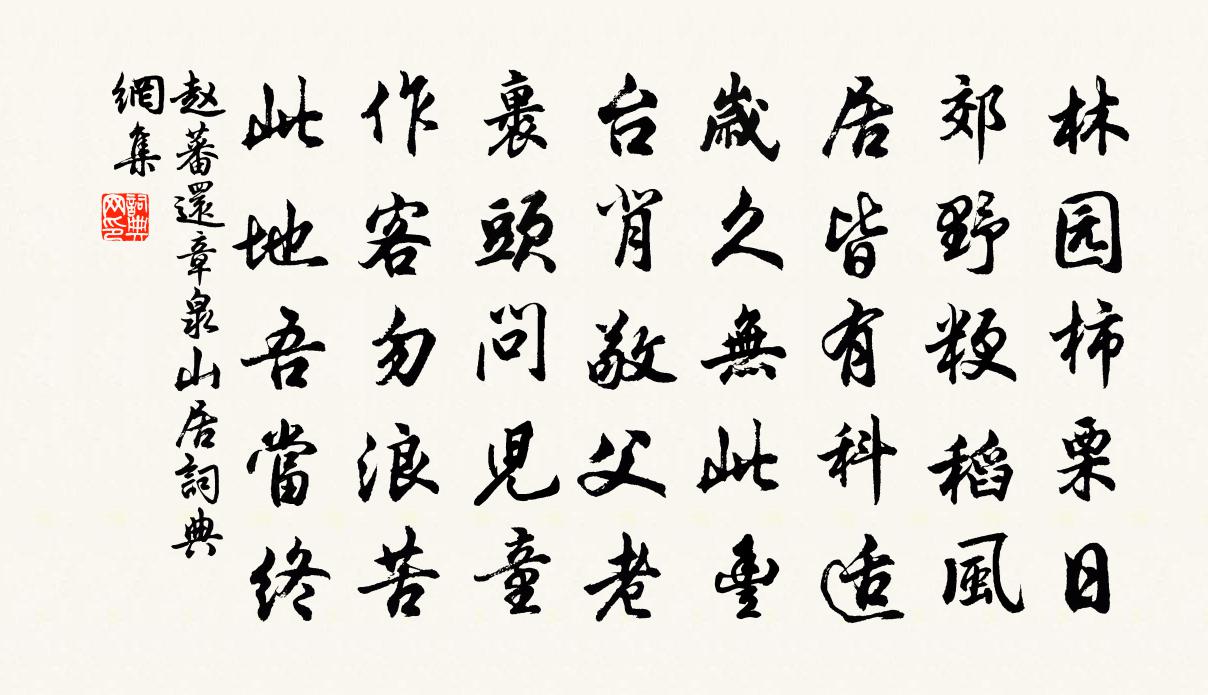 林园柿栗日
郊野粳稻風
居皆有科适
歲久無此豊
台背敬父老
裹頭問児童
作客勿浪苦
此地吾當終
赵蕃還章泉山居詞典
網集
詞典网印